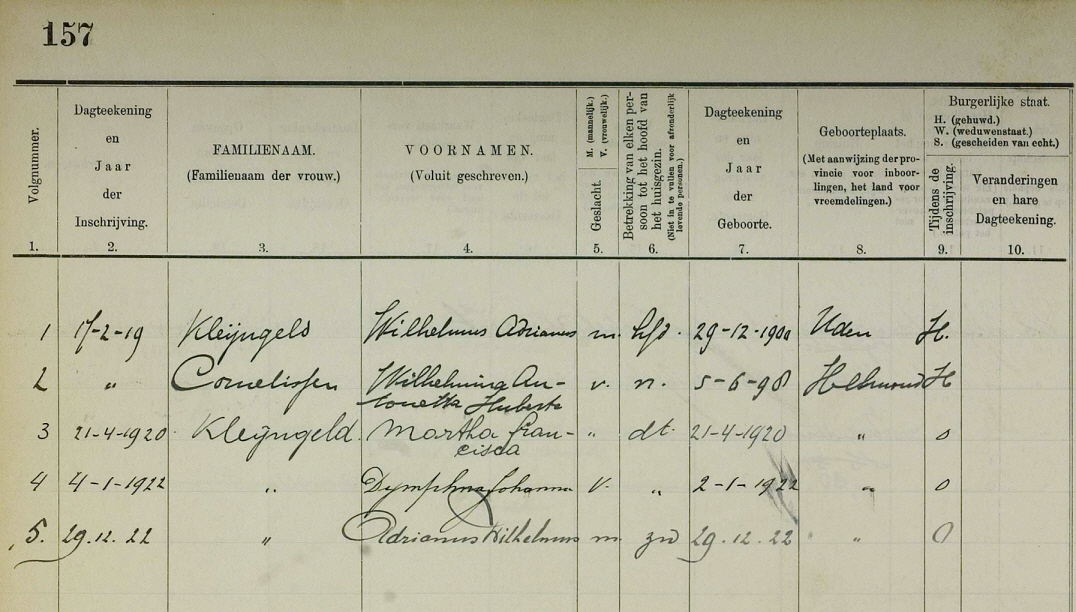 157
Volgnummer.
1.
Dagteekening
en
Jaar
der
Inschrijving.
2.
FAMILIENAAM.
(Familienaam der vrouw.)
3.
VOORNAMEN.
(Voluit geschreven.)
4.
M. (mannelijk.)
V. (vrouwelijk.)
Geslacht.
5.
Betrekking van elken per-
soon tot het hoofd van
het huisgezin.
(Niet in te vullen voor afzonderlijk
levende personen.)
6.
Dagteekening
en
Jaar
der
Geboorte.
7.
Geboorteplaats.
(Met aanwijzing der pro-
vincie voor inboor-
lingen, het land voor
vreemdelingen.)
8.
Burgerlijke staat.
H. (gehuwd.)
W. (weduwenstaat.)
S. (gescheiden van echt.)
Tijdens de
inschrijving.
9.
Veranderingen
en hare
Dagteekening.
10.
1 -2-19 Kleijngeld Wilhelmus Adrianus m. hfd. 29-12-1900 Uden H.
2 " Cornelissen Wilhelmina An-
tonetta Huberta v. n. 5-6-98 Helmond H
3 21-4-1920 Kleijngeld Martha Fran-
cisca " dt. 21-4-1920 " o
4 4-1-1922 " Dymphna Johanna v. " 2-1-1922 " o
5. 29.12.22 " Adrianus Wilhelmus m zn 29.12.22 " o